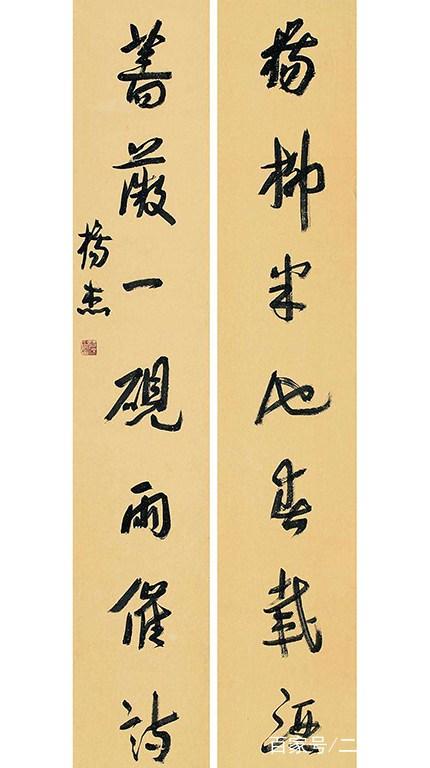 楊柳半池春載酒
薔薇一硯雨催詩
楊杰
百家号/二